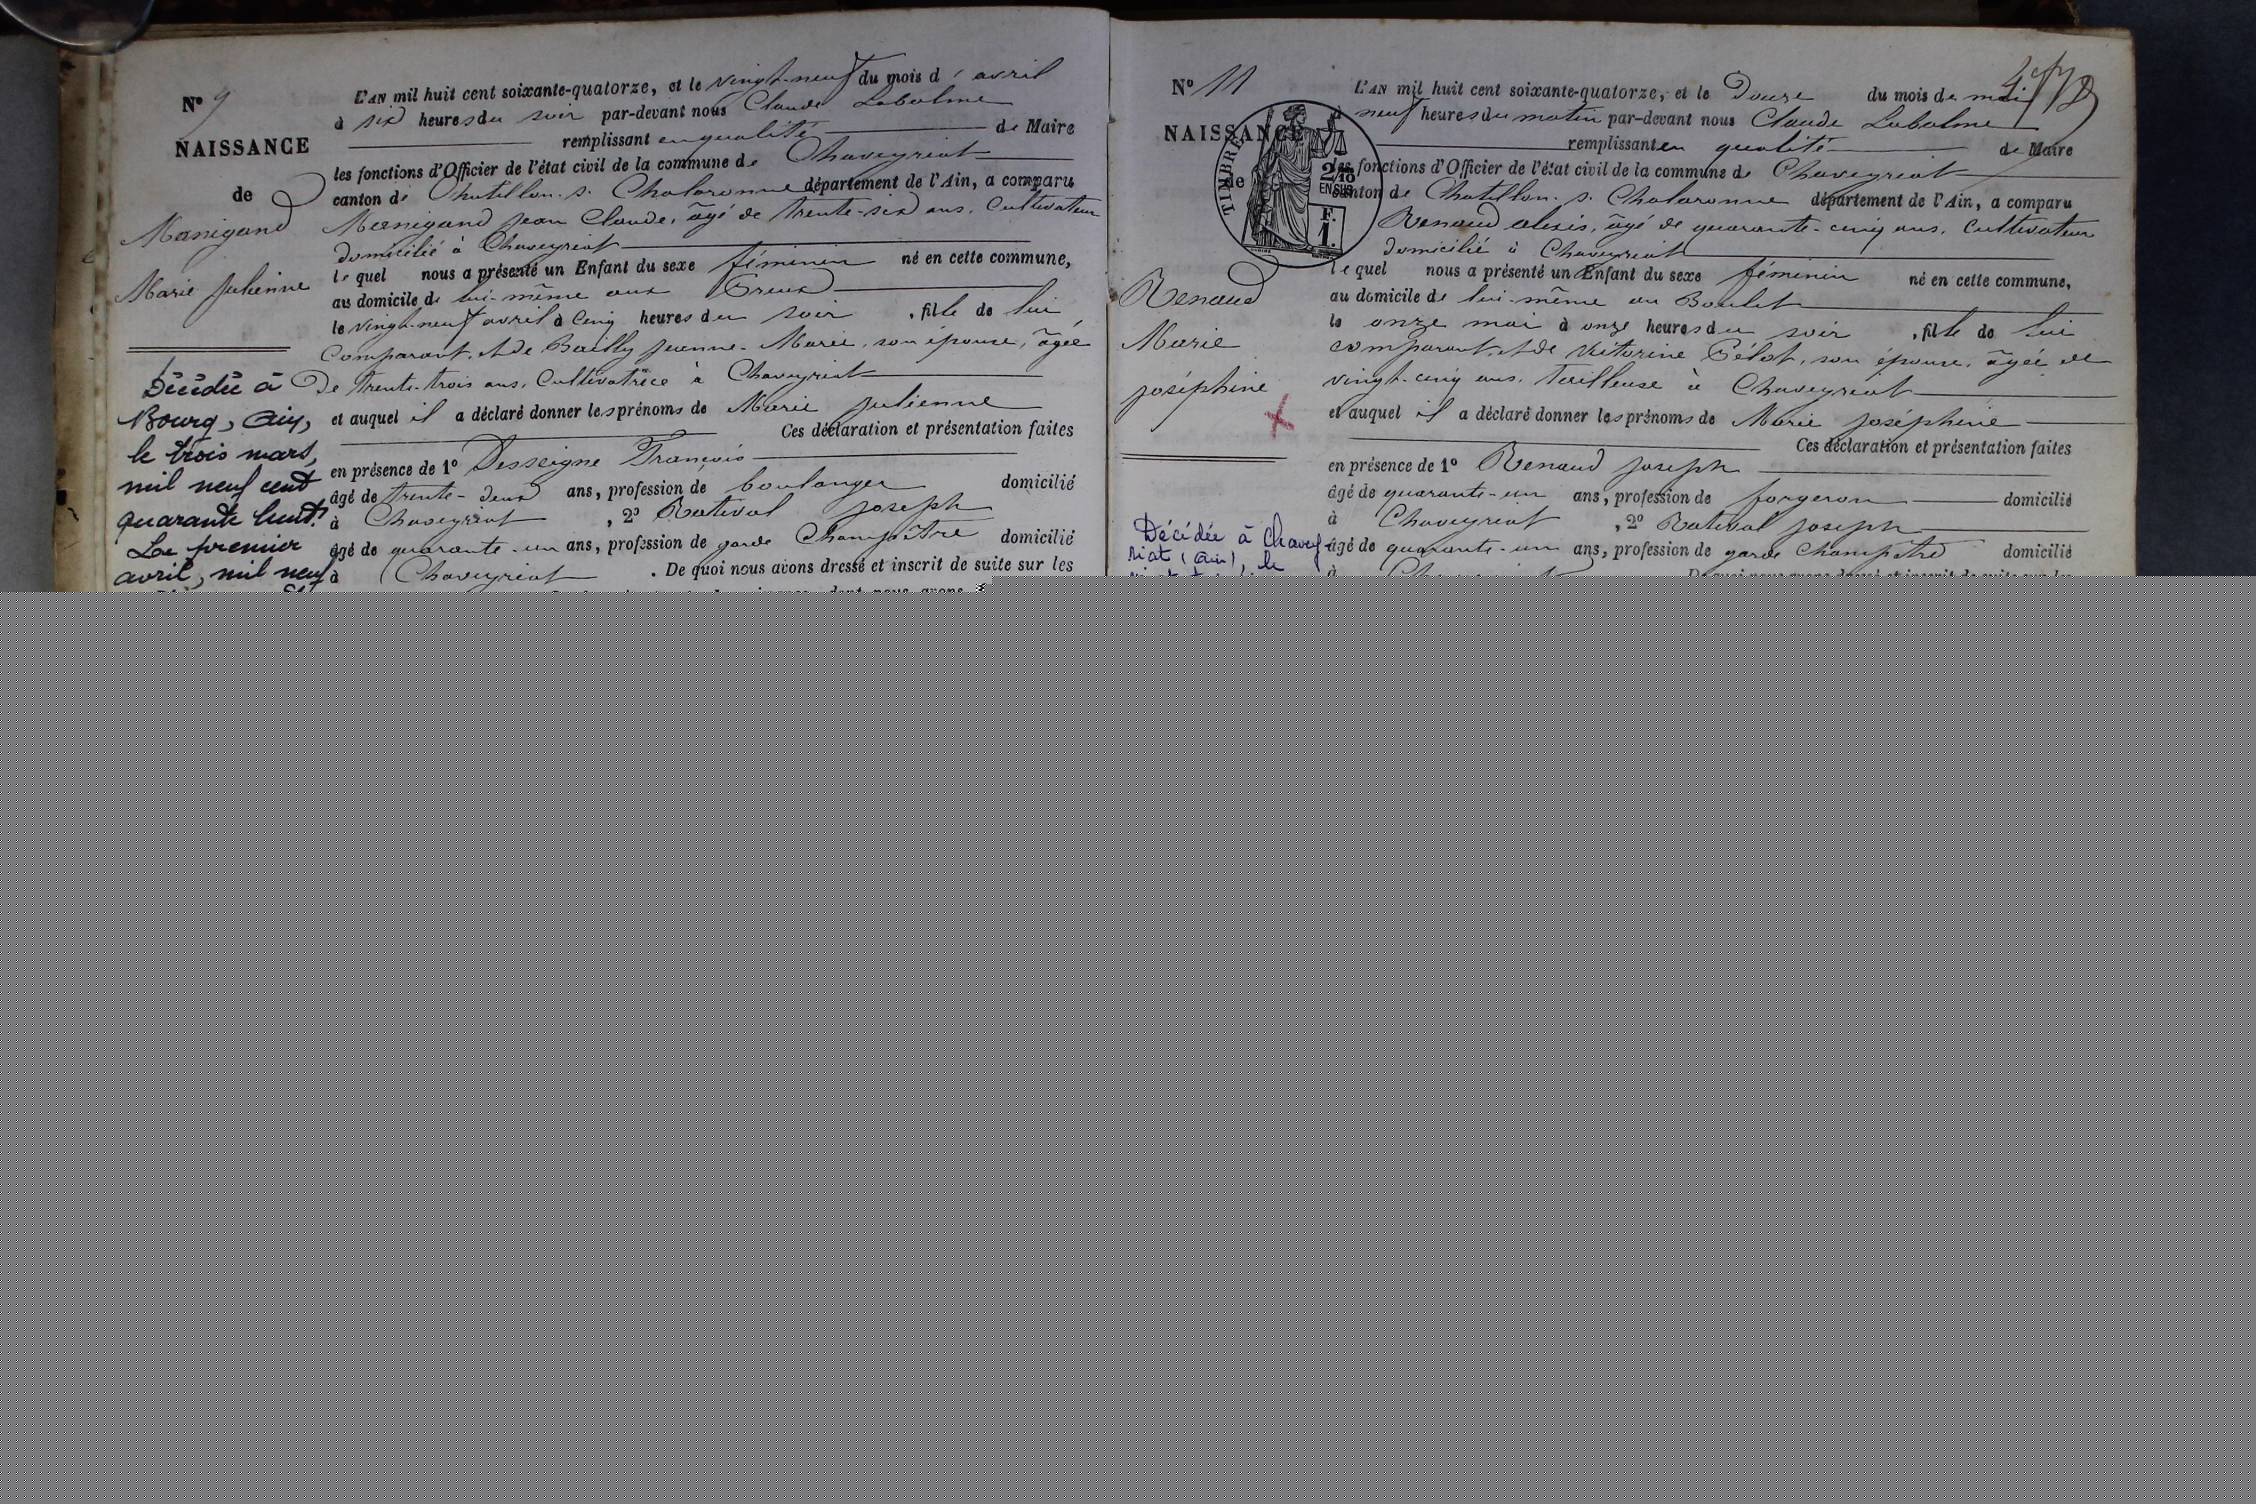 N° 9
NAISSANCE
de
Manigand
Marie Julienne
Décédée à
Bourg, Ain,
le trois mars,
mil neuf cent
quarante huit.
Le premier
avril, mil neuf
L'AN mil huit cent soixante-quatorze, et le vingt-neuf du mois d'avril
à six heures du soir par-devant nous Claude Labalme
remplissant en qualité de Maire
les fonctions d'Officier de l'état civil de la commune de Chaveyriat
canton de Chatillon-s-Chalaronne département de l'Ain, a comparu
Manigand Jean Claude, âgé de trente-six ans, Cultivateur
domicilié à Chaveyriat
lequel nous a présenté un Enfant du sexe féminin né en cette commune,
au domicile de lui-même aux Creux
le vingt-neuf avril à cinq heures du soir, fille de lui
Comparant, et de Bailly Jeanne-Marie, son épouse, âgée
De trente-trois ans, Cultivatrice à Chaveyriat
et auquel il a déclaré donner les prénoms de Marie Julienne
Ces déclaration et présentation faites
en présence de 1° Desseigne François
âgé de trente-deux ans, profession de boulanger domicilié
à Chaveyriat, 2° Rativol Joseph
âgé de quarante-un ans, profession de garde Champêtre domicilié
à Chaveyriat. De quoi nous avons dressé et inscrit de suite sur les
N° 11
NAISSANCE
de
Renaud
Marie
Joséphine
Décédée à Chavey-
riat (Ain), le
TIMBRE
2/10
EN SUS
F.
1.
L'AN mil huit cent soixante-quatorze, et le Douze du mois de mai
à neuf heures du matin par-devant nous Claude Labalme
remplissant en qualité de Maire
les fonctions d'Officier de l'état civil de la commune de Chaveyriat
canton de Chatillon-s-Chalaronne département de l'Ain, a comparu
Renaud alexis, âgé de quarante-cinq ans, Cultivateur
domicilié à Chaveyriat
lequel nous a présenté un Enfant du sexe féminin né en cette commune,
au domicile de lui-même au Boulet
le onze mai à onze heures du soir, fille de lui
comparant, et de Victorine Pélot, son épouse, âgée de
vingt-cinq ans, tailleuse à Chaveyriat
et auquel il a déclaré donner les prénoms de Marie Joséphine
Ces déclaration et présentation faites
en présence de 1° Renaud Joseph
âgé de quarante-un ans, profession de forgeron domicilié
à Chaveyriat, 2° Rativol Joseph
âgé de quarante-un ans, profession de garde Champêtre domicilié